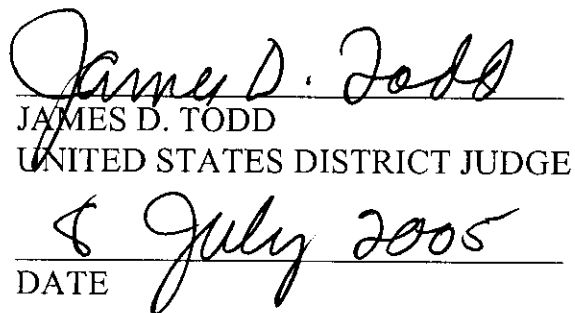 James D. Todd
JAMES D. TODD
UNITED STATES DISTRICT JUDGE
8 July 2005
DATE